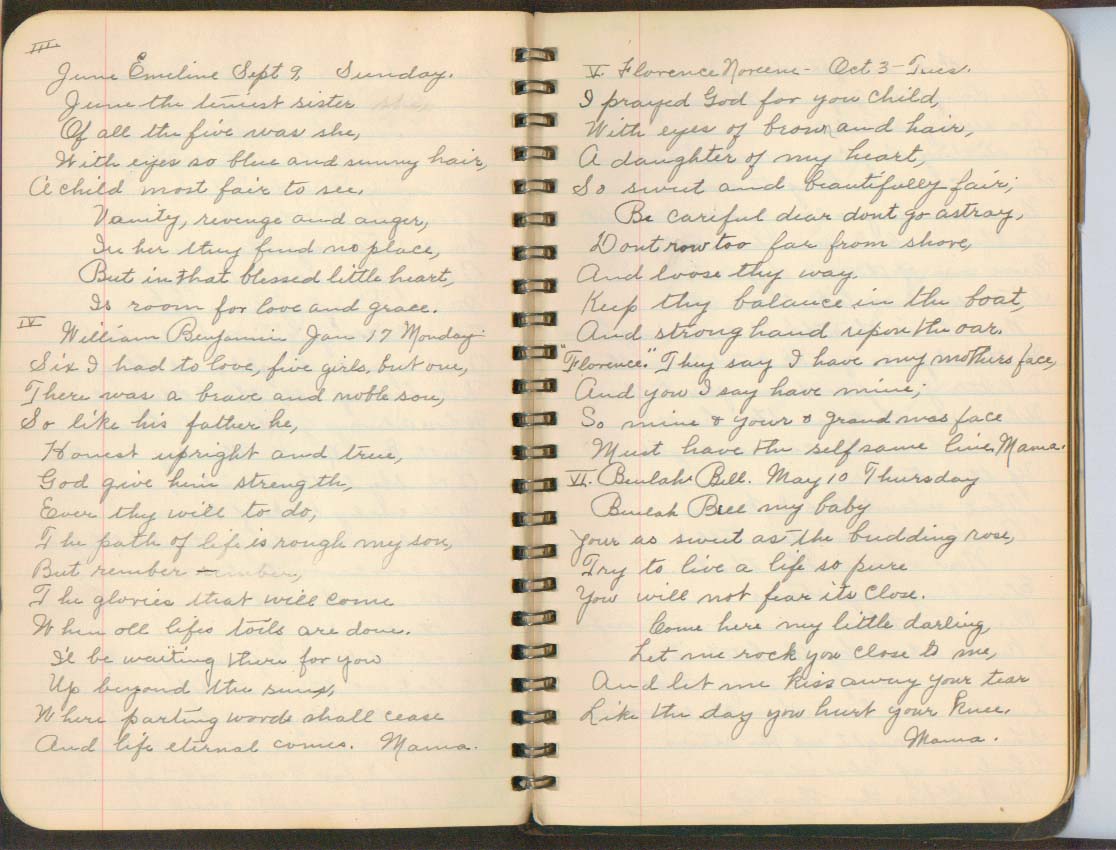 III
June Emeline Sept 9, Sunday.
June the teniest sister
Of all the five was she,
With eyes so blue and sunny hair,
A child most fair to see.
Vanity, revenge and anger,
In her they find no place,
But in that blessed little heart,
Is room for love and grace.
IV
William Benjamin Jan 17 Monday
Six I had to love, five girls, but one,
There was a brave and noble son,
So like his father he,
Honest upright and true,
God give him strength,
Ever thy will to do,
The path of life is rough my son,
But rember
The glories that will come
When all lifes toils are done.
I'l be waiting there for you
Up beyond the suns,
Where parting words shall cease
And life eternal comes. Mama.
V. Florence Noreene - Oct 3 - Tues.
I prayed God for you child,
With eyes of brown and hair,
A daughter of my heart,
So sweet and beautifully fair;
Be careful dear dont go astray,
Dont row too far from shore,
And loose thy way.
Keep thy balance in the boat,
And strong hand upon the oar.
"Florence." They say I have my mothers face,
And you I say have mine;
So mine & your & grand mas face
Must have the self same line. Mama.
VI. Beulah Bell. May 10 Thursday
Beulah Bell my baby
Your as sweet as the budding rose,
Try to live a life so pure
You will not fear its close.
Come here my little darling,
Let me rock you close to me,
And let me kiss away your tear
Like the day you hurt your knee.
Mama.